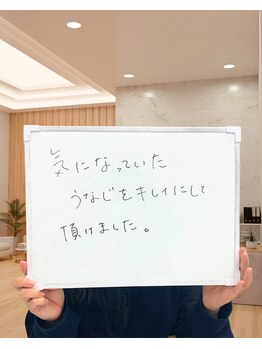 気になっていた
うなじをキレイにして
頂けました。